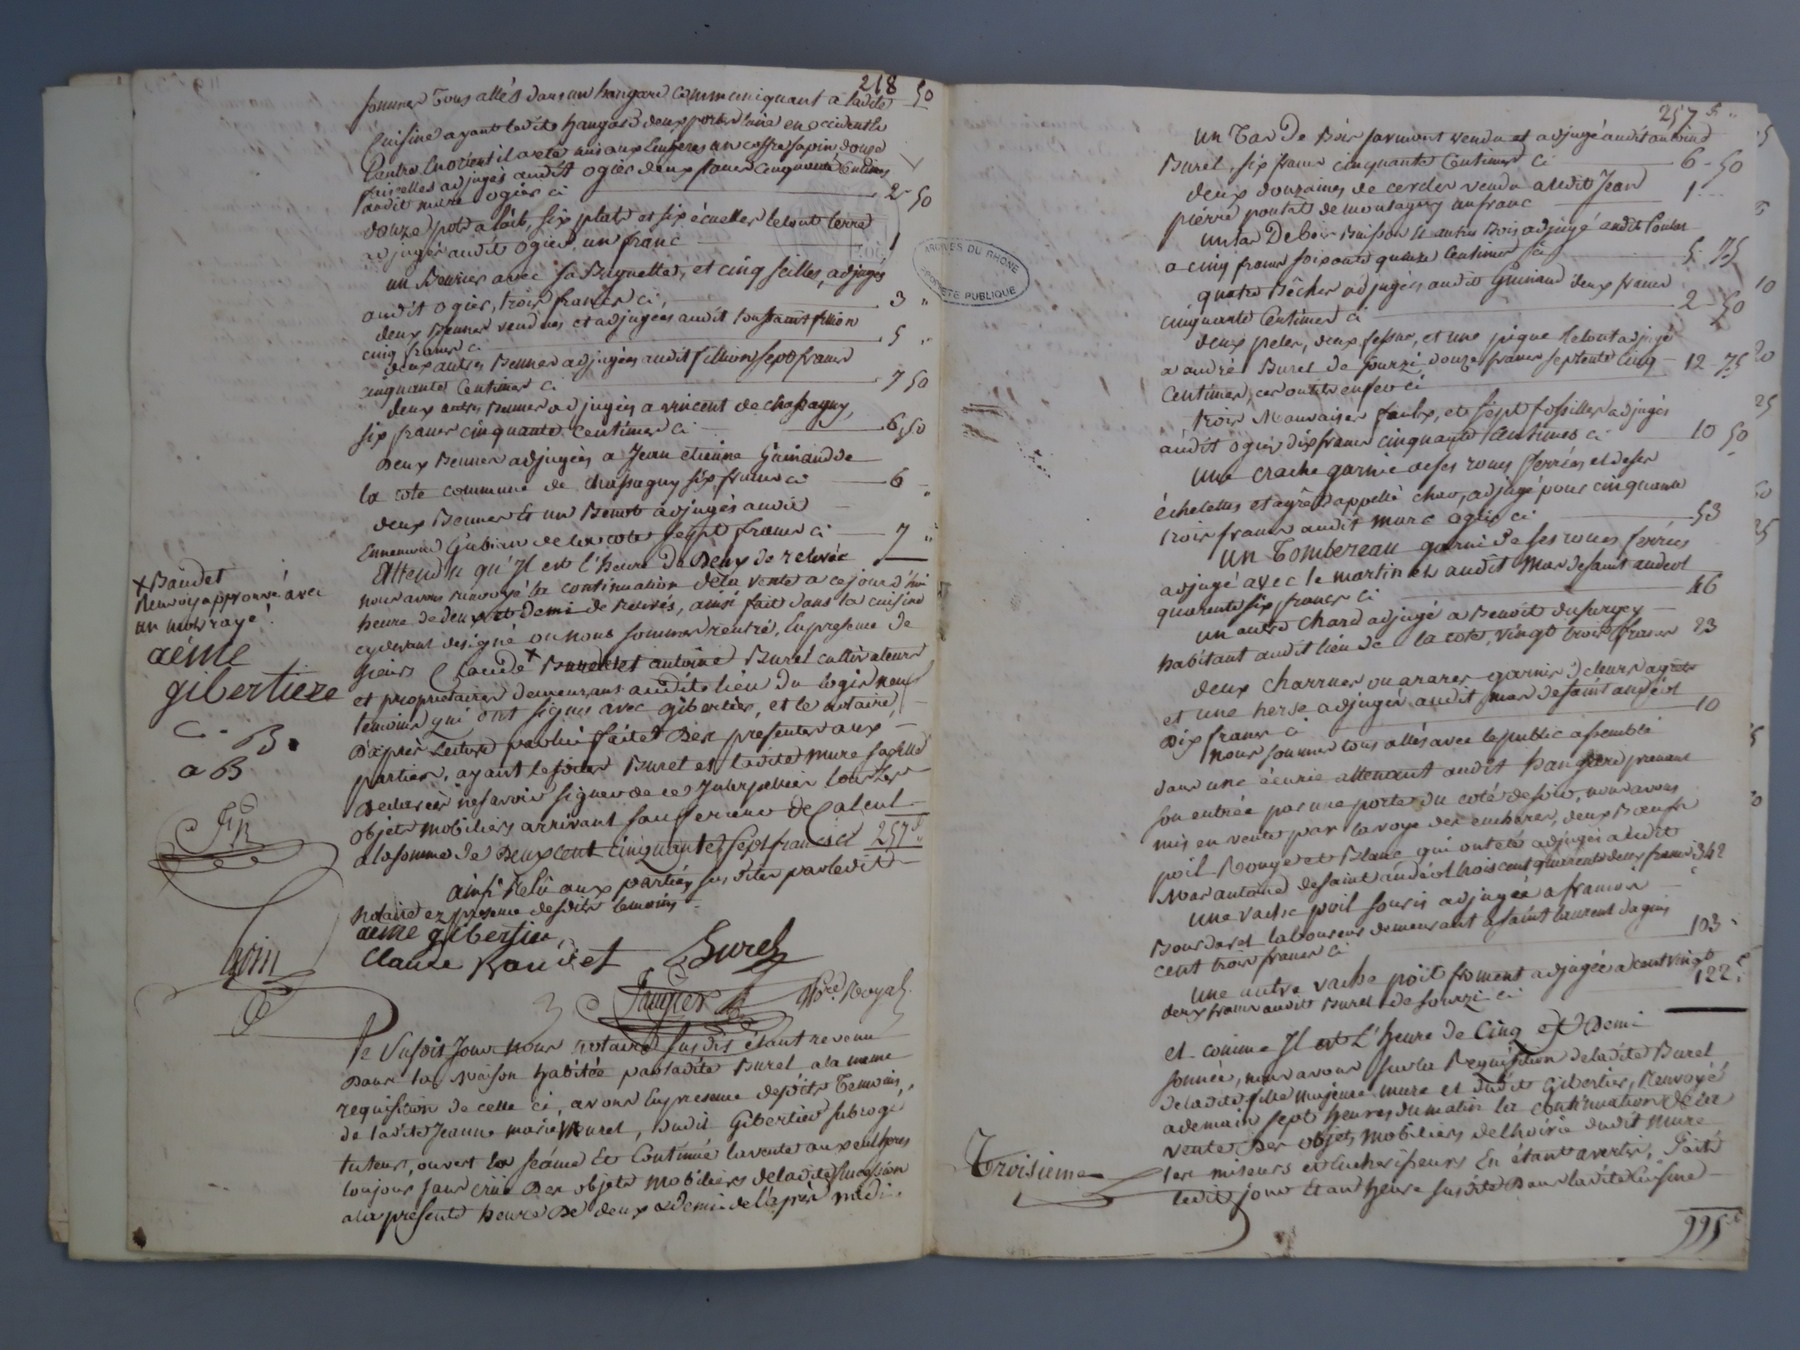 218 50
sommes tous allés dans un hangard communiquant a ladite
Cuisine ayant ledit hangard deux portes l'une en occident &
l'autre En orient il a eté mis aux Encheres un coffre sapin, douze
faisselles adjugés audit ogier deux francs cinquante Centimes
audit mure ogier ci 2 50
douze pots a lait, six plats et six écuelles le tout terre
adjugés audit ogier, un franc 1
un Beurier avec sa Bugnette, et cinq seilles, adjugés
audit ogier, trois francs ci, 3 "
deux Bennes vendues et adjugées audit Constant fillion
cinq francs ci 5 "
deux autres Bennes adjugées audit fillion, sept francs
cinquante Centimes ci 7 50
deux autres Bennes adjugées a vincent de chassagny,
six francs cinquante Centimes ci 6 50
Deux Bennes adjugées a Jean etienne Guinand de
la cote commune de chassagny six francs ci 6 "
deux Bennes et un Benot adjugés audit
Ennemond Gubian de la cote sept francs ci 7 "
Attendu qu'Il est l'heure de Deux de relevée
nous avons renvoyé la continuation de la vente a ce jour d'hui
heure de deux et demi de relevés, ainsi fait dans la cuisine
cydevant designé ou nous sommes rentré, En presence de
sieurs Claude x et antoine Burel cultivateurs
et proprietaires demeurans audit lieu du logis neuf
temoins qui ont signés avec gibertier, et le notaire,
D'après Lecture par lui faite Des presentes aux
parties, ayant lesdites Burel et ladite mure fa fille
declarées ne savoir signer de ce Interpellées tous Les
objets mobiliers arrivant sauf erreur de Calcul
a la somme de Deux cent cinquante sept francs ci 257 f
ainsi Relu aux parties susdites par ledit
Notaire en presence desdits temoins
aéme gibertier
Claude Baudet Burel
Nre Royal
x Baudet
Renvoy approuvé avec
un mot rayé
aéme
gibertiere
C. B.
a B
Le Susdit Jour Nous notaire susdit étant revenu
Dans la Maison habitée par ladite Burel a la meme
requisition de celle ci, avons En presence desdits Temoins,
de ladite Jeanne marie Burel, dudit Gibertier subrogé
tuteur, ouvert la séance et Continué la vente aux encheres
toujours sans criée Des objets mobiliers de ladite succession
a la presente heure De deux & Demie de l'après midi.
257 f "
un Tas De Bois sarment vendu et adjugé audit antoine
Burel, six francs cinquante Centimes ci 6 50
deux douzaines de cercles vendu audit Jean
pierre pontet de montagny un franc 1
un tas De bois Buisson et autres Bois adjugé audit
a cinq francs soixante quinze Centimes ci 5 75
quatre Bêches adjugées audit Guinand deux francs
cinquante Centimes ci 2 50
deux peles, deux fessus, et une pique le tout adjugé
a andré Burel de sourzi douze francs septente cinq 12 75
Centimes, ces outils en fer ci
trois Mauvaises faulx, et sept fossilles adjugés
audit ogier dix francs cinquante Centimes ci 10 50
Une crache garnie de ses roues ferrées et de ses
échelettes et agrès appellé char, adjugé pour cinquante
trois francs audit mure ogier ci 53
un Tombereau garni de ses roues ferrées
adjugé avec le martinet audit Mar de saint andeol
quarante six francs ci 46
un autre Chard adjugé a Benoit dusurgey
habitant audit lieu de la cote, vingt trois francs 23
deux charrues ou arares garnis de leurs agrets
et une herse adjugés audit mar de saint andéol
Dix francs ci 10
Nous sommes tous allés avec le public assemblé
dans une écurie attenant audit hangard prenant
son entrée par une porte du coté de soir, nous avons
mis en vente par la voye des encheres, deux Bœufs
poil Rouge et Blanc qui ont eté adjugés audit
Mar antoine de saint andéol trois cent quarante deux francs 342
une vache poil souris adjugée a françois
Bourdarel laboureur demeurant a saint laurent dagny
cent trois francs ci 103
une autre vache poil froment adjugée a cent vingt
deux francs audit Burel de sourzi ci 122
et comme Il est l'heure de Cinq et Demi
sonnée, nous avons sur la Requisition de ladite Burel
de ladite fille majeure mure et dudit Gibertier, Renvoyé
a demain sept heures du matin la continuation de la
vente Des objets mobiliers de l'hoirie dudit mure
les miseurs et Encherisseurs En étant avertis, Fait
ledit jour et an heure susdite Dans ladite Cuisine
Troisieme
995 f
ARCHIVES DU RHONE
PROPRIETE PUBLIQUE